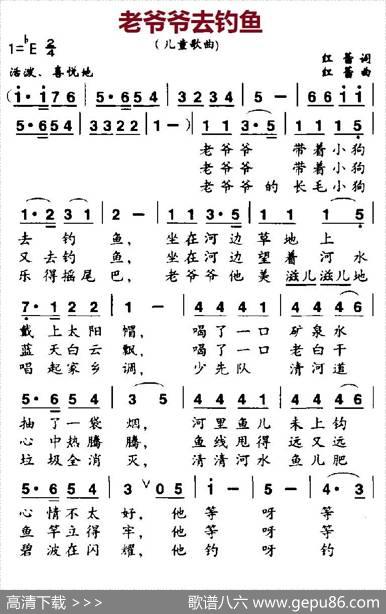 老爷爷去钓鱼
（儿童歌曲）
1=♭E 2/4
红蕾 词
活泼、喜悦地
红蕾 曲
(i·i76 | 5·654 | 3234 | 5 - | 66ii |
5·654 | 332 | 1 1) | 113 | 113·5 |
老爷爷 带着小狗
老爷爷 带着小狗
老爷爷的 长毛小狗
1·231 | 2 - | 113·5 | 1115 |
去钓鱼，坐在河边草地上
又去钓鱼，坐在河边望着河水
乐得摇尾巴，老爷爷他美滋儿滋儿地
7·122 | 1 - | 4441 | 4446 |
戴上太阳帽，喝了一口矿泉水
蓝天白云飘，喝了一口老白干
唱起家乡调，少先队清河道
5·654 | 3 - | 4441 | 4446 |
抽了一袋烟，河里鱼儿未上钩
心中热腾腾，鱼线甩得远又远
垃圾全消灭，清清河水鱼儿肥
5·654 | 3 ∨05 | i - | 5 - | 4·3 |
心情不太好，他等呀等
鱼竿立得牢，他等呀等
碧波在闪耀，他钓呀钓
高清下载 >>>
歌谱八六 www.gepu86.com